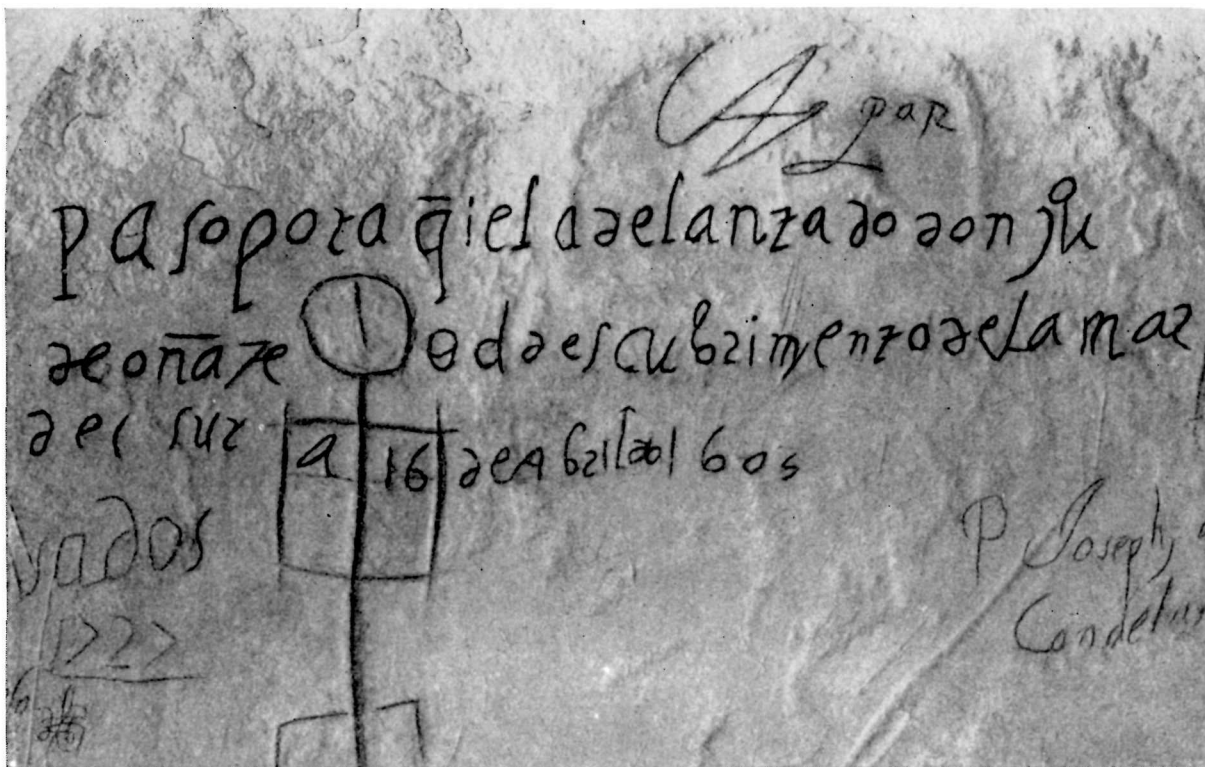 par
pasoporaq̄ieladelantadodonjũ
deoñate o d descubrimentodelamar
del sur a 16 deAbrildel 60s
vados
1727
P Joseph,
Candelar